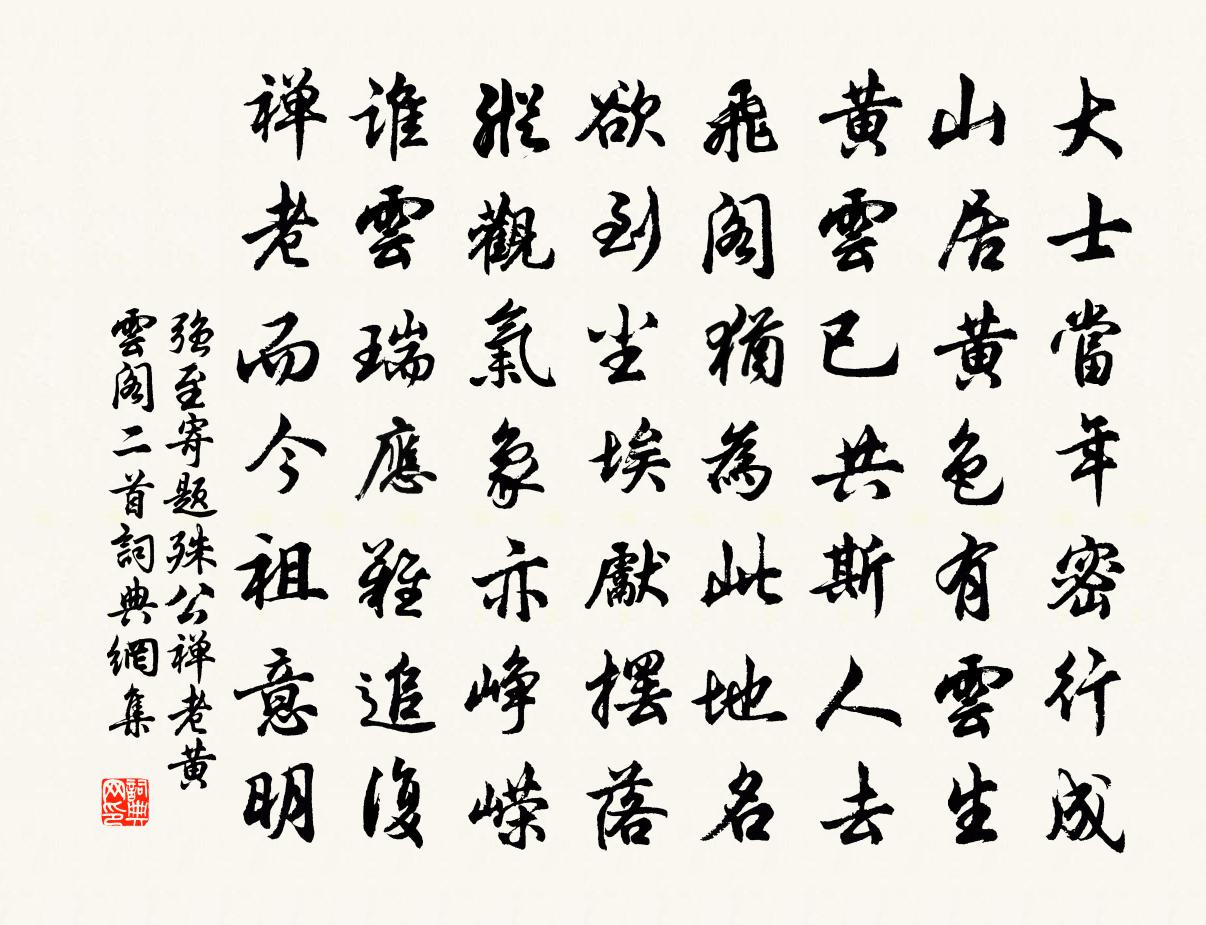 大士當年密行成
山居黄色有雲生
黄雲已共斯人去
飛閣猶為此地名
欲到尘埃獻擺落
縱觀氣象亦崢嶸
誰雲瑞應難追復
禅老而今祖意明
強至寄題殊公禅老黄
雲閣二首詞典網集
詞典网印